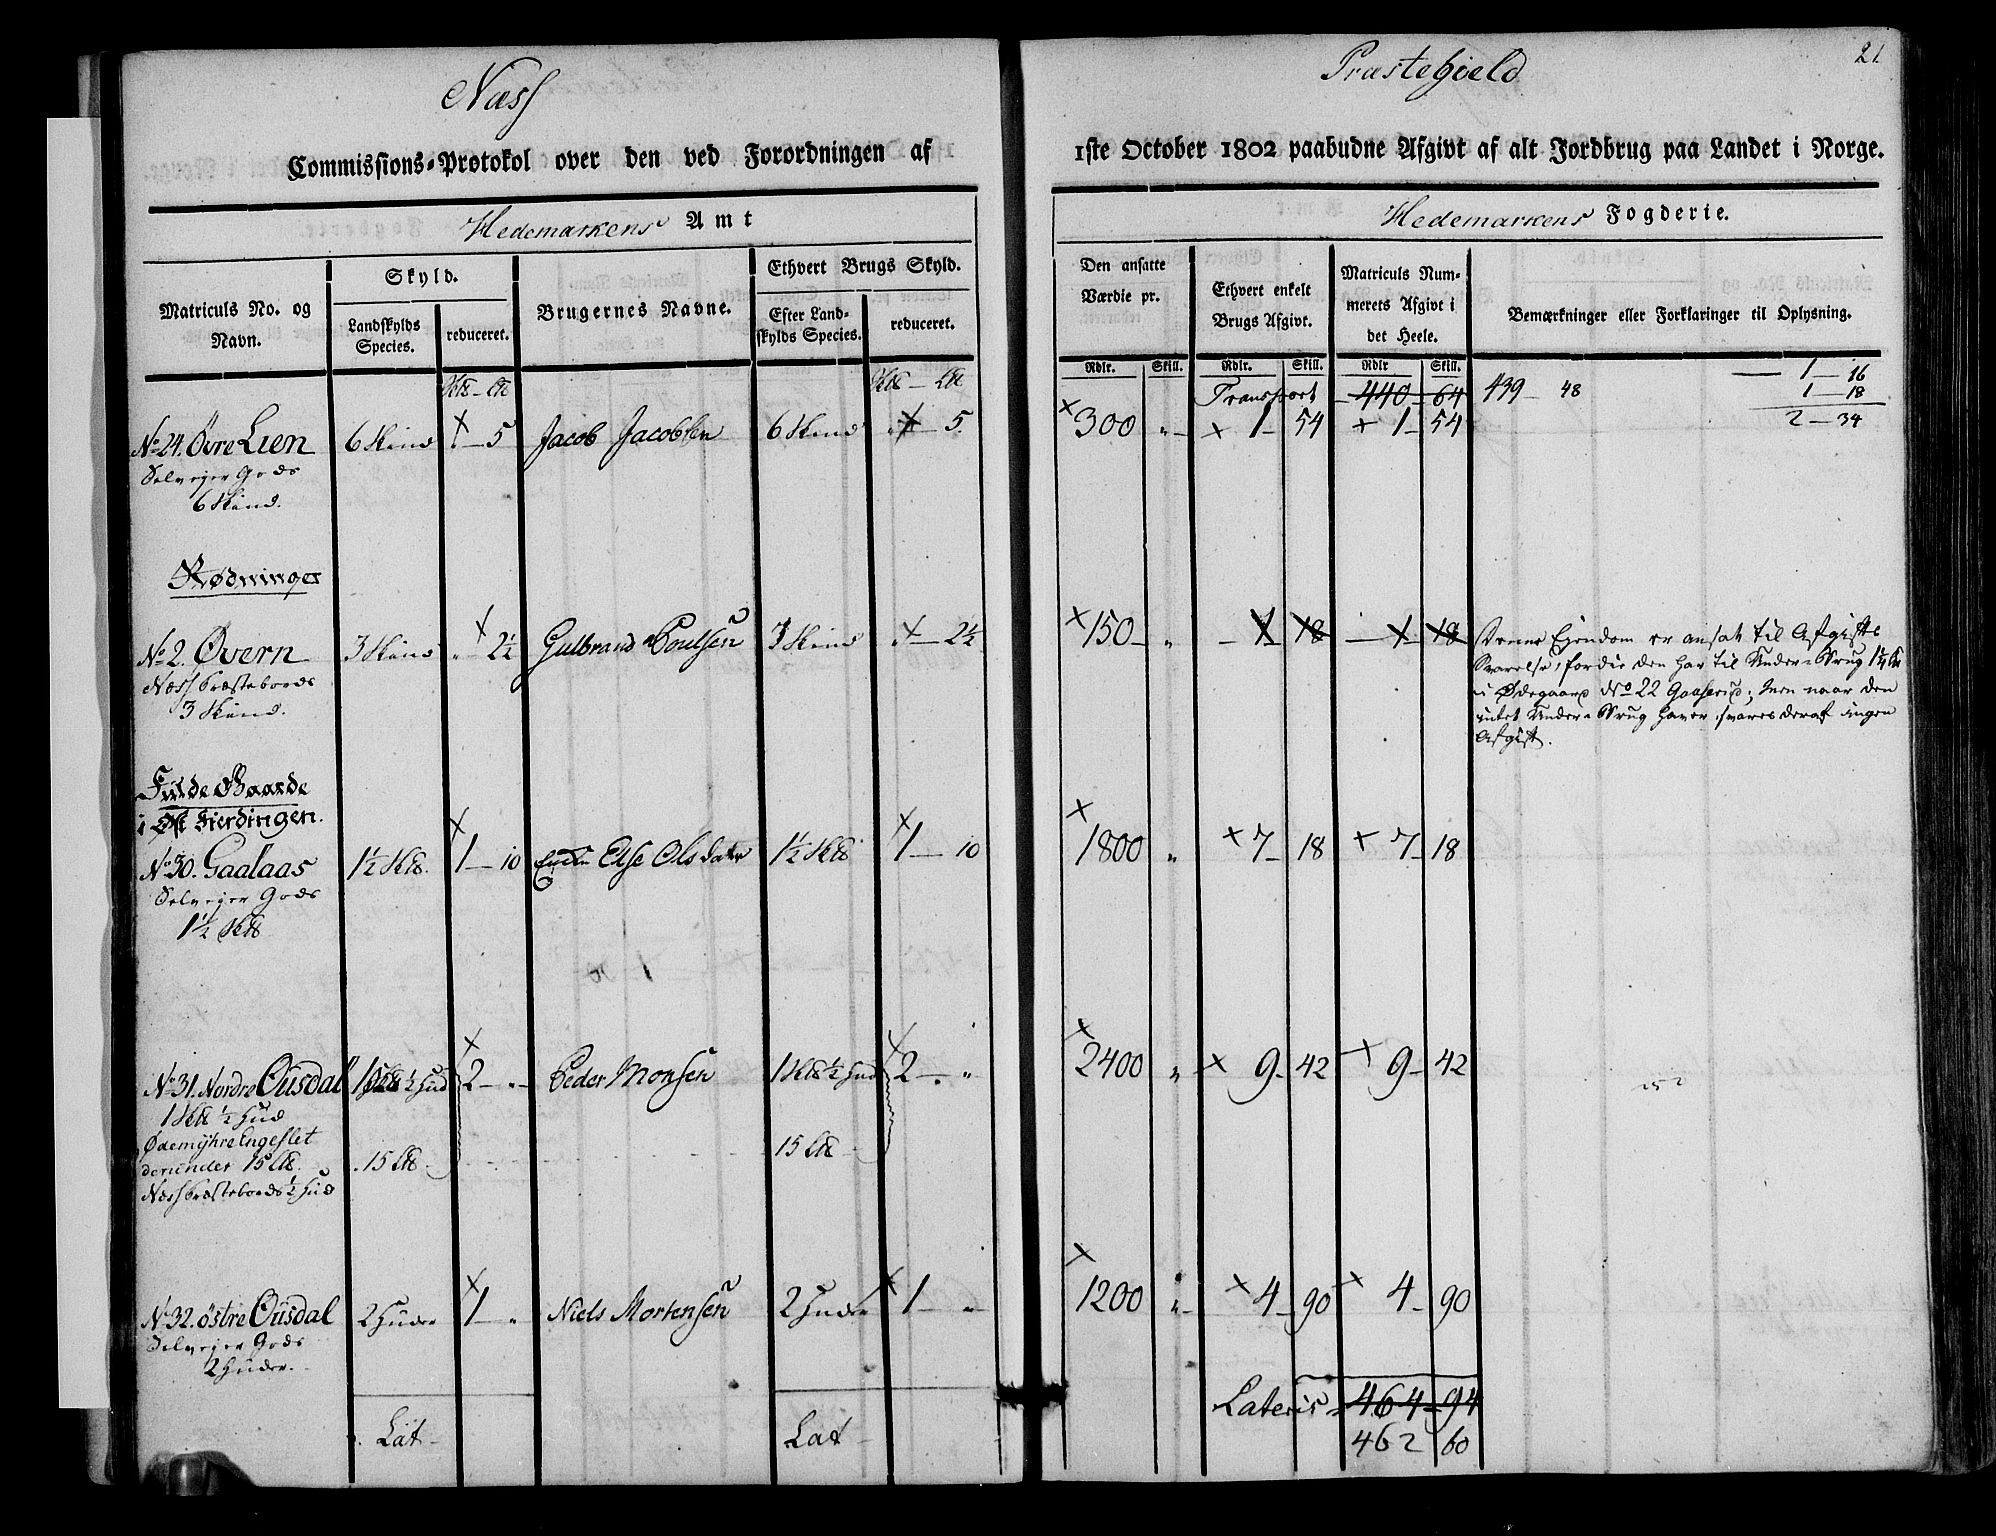 Næss Præstegield 21
Commissions-Protokol over den ved Forordningen af 1ste October 1802 paabudne Afgivt af alt Jordbrug paa Landet i Norge.
Hedemarkens Amt
Hedemarkens Fogderie.
Matriculs No. og Navn.
Skyld.
Landskylds Species.
reduceret.
Brugernes Navne.
Ethvert Brugs Skyld.
Efter Landskylds Species.
reduceret.
Den ansatte Værdie pr.
Ethvert enkelt Brugs Afgivt.
Matriculs Nummerets Afgivt i det Heele.
Bemærkninger eller Forklaringer til Oplysning.
Rdlr. Skill. Rdlr. Skill. Rdlr Skill.
Transport 440 64 439 48
1 - 16
1 - 18
2 - 34
No 24. Øvre Lien 6 Skind - 5 Jacob Jacobsen 6 Skind - 5. 300 " 1 - 54 1 - 54
Selveyer Gods
6 Skind.
Rødninger
No 2. Øvern 3 Skind " 2½ Gulbrand Poulsen 3 Skind - 2½ 150 - " 1 18 - 1 - 18
Næss Præstebords
3 Skind.
Denne Ejendom er ansat til Afgifts
Svarelse, fordie den har til Under-Brug
i Ødegaard No 22 ; Men naar den
intet Under-Brug haver, svares deraf ingen
Afgift.
Fulde Gaarde
i Øst Fierdingen.
No 30. Gaalaas 1½ Skt. 1 - 10 Else Olsdatter 1½ Skt 1 - 10 1800 " 7 - 18 7 - 18
Selveyer Gods
1½ Skt
No 31. Nordre Ousdal 1 Skt ½ Hud 2 - " - Peder Monsen 1 Skt ½ Hud 2 - " 2400 " 9 - 42 9 - 42
1 Skt ½ Hud
Ødemyhre Engeslet
derunder 15 . 15 15
Næss Præstebords ½ Hud
No 32. østre Ousdal 2 Huder 1 - " Niels Mortensen 2 Huder 1 - " 1200 " 4 - 90 4 - 90
Selveyer Gods
2 Huder.
Lat Lat Lateris 464 - 94
462 60